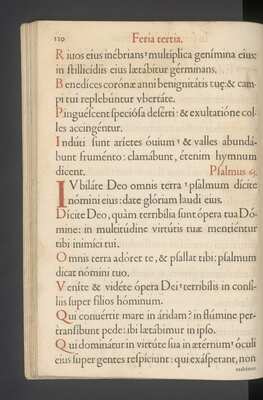 120 Feria tertia.
Riuos eius inébrians, multíplica genímina eius:
in stillicídiis eius lætábitur gérminans.
Benedíces corónæ anni benignitátis tuę: & cam-
pi tui replebúntur vbertáte.
Pinguéscent speciósa desérti: & exultatióne col-
les accingéntur.
Indúti sunt aríetes óuium, & valles abundá-
bunt fruménto: clamábunt, étenim hymnum
dicent. Psalmus 65.
IVbiláte Deo omnis terra, psálmum dícite
nómini eius: date glóriam laudi eius.
Dícite Deo, quàm terribília sunt ópera tua Dó-
mine: in multitúdine virtútis tuæ mentiéntur
tibi inimíci tui.
Omnis terra adóret te, & psallat tibi: psalmum
dicat nómini tuo.
Veníte & vidéte ópera Dei, terríbilis in consí-
liis super fílios hóminum.
Qui conuértit mare in áridam, in flúmine per-
transíbunt pede: ibi lætábimur in ipso.
Qui dominátur in virtúte sua in ætérnum, óculi
eius super gentes respíciunt: qui exásperant, non